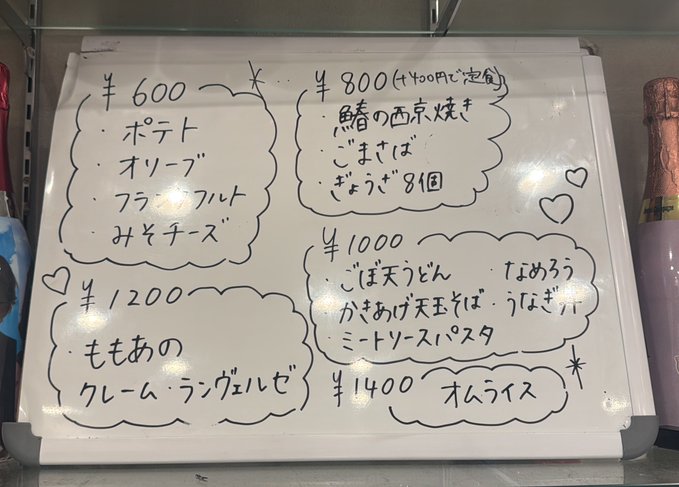 ¥600
・ポテト
・オリーブ
・フランクフルト
・みそチーズ
¥800(+400円で定食)
・鰆の西京焼き
・ごまさば
・ぎょうざ8個
¥1000
・ごぼ天うどん ・なめろう
・かきあげ天玉そば ・うなぎ
・ミートソースパスタ
¥1200
・ももあの
クレーム・ランヴェルゼ
¥1400 オムライス